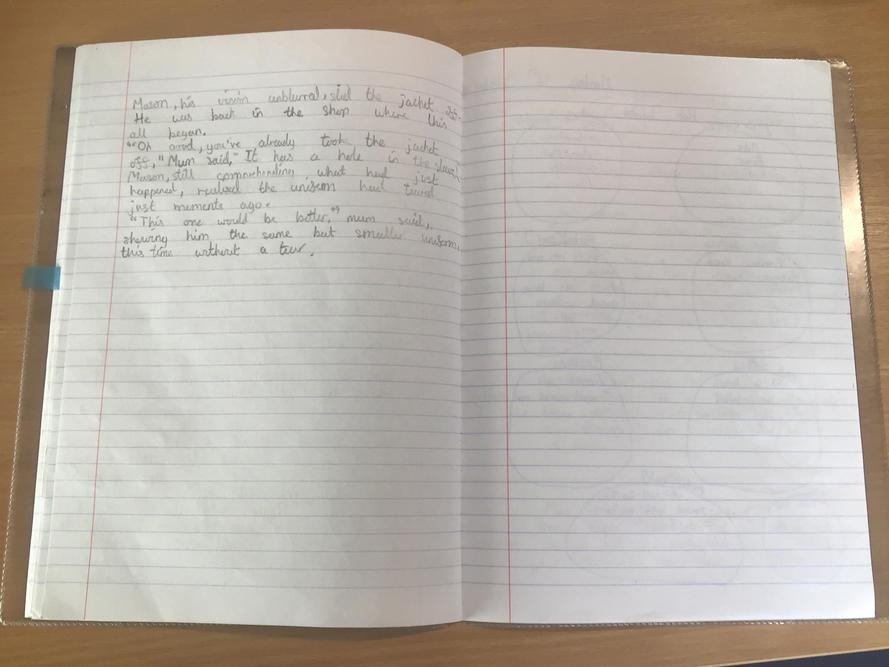 Mason, his vision unblurred, slid the jacket off.
He was back in the shop where this
all began.
"Oh good, you've already took the jacket
off," Mum said, "It has a hole in the
Mason, still comprehending what had just
happened, realised the had
just moments ago.
"This one would be better," mum said,
showing him the same but smaller
this time without a tear.